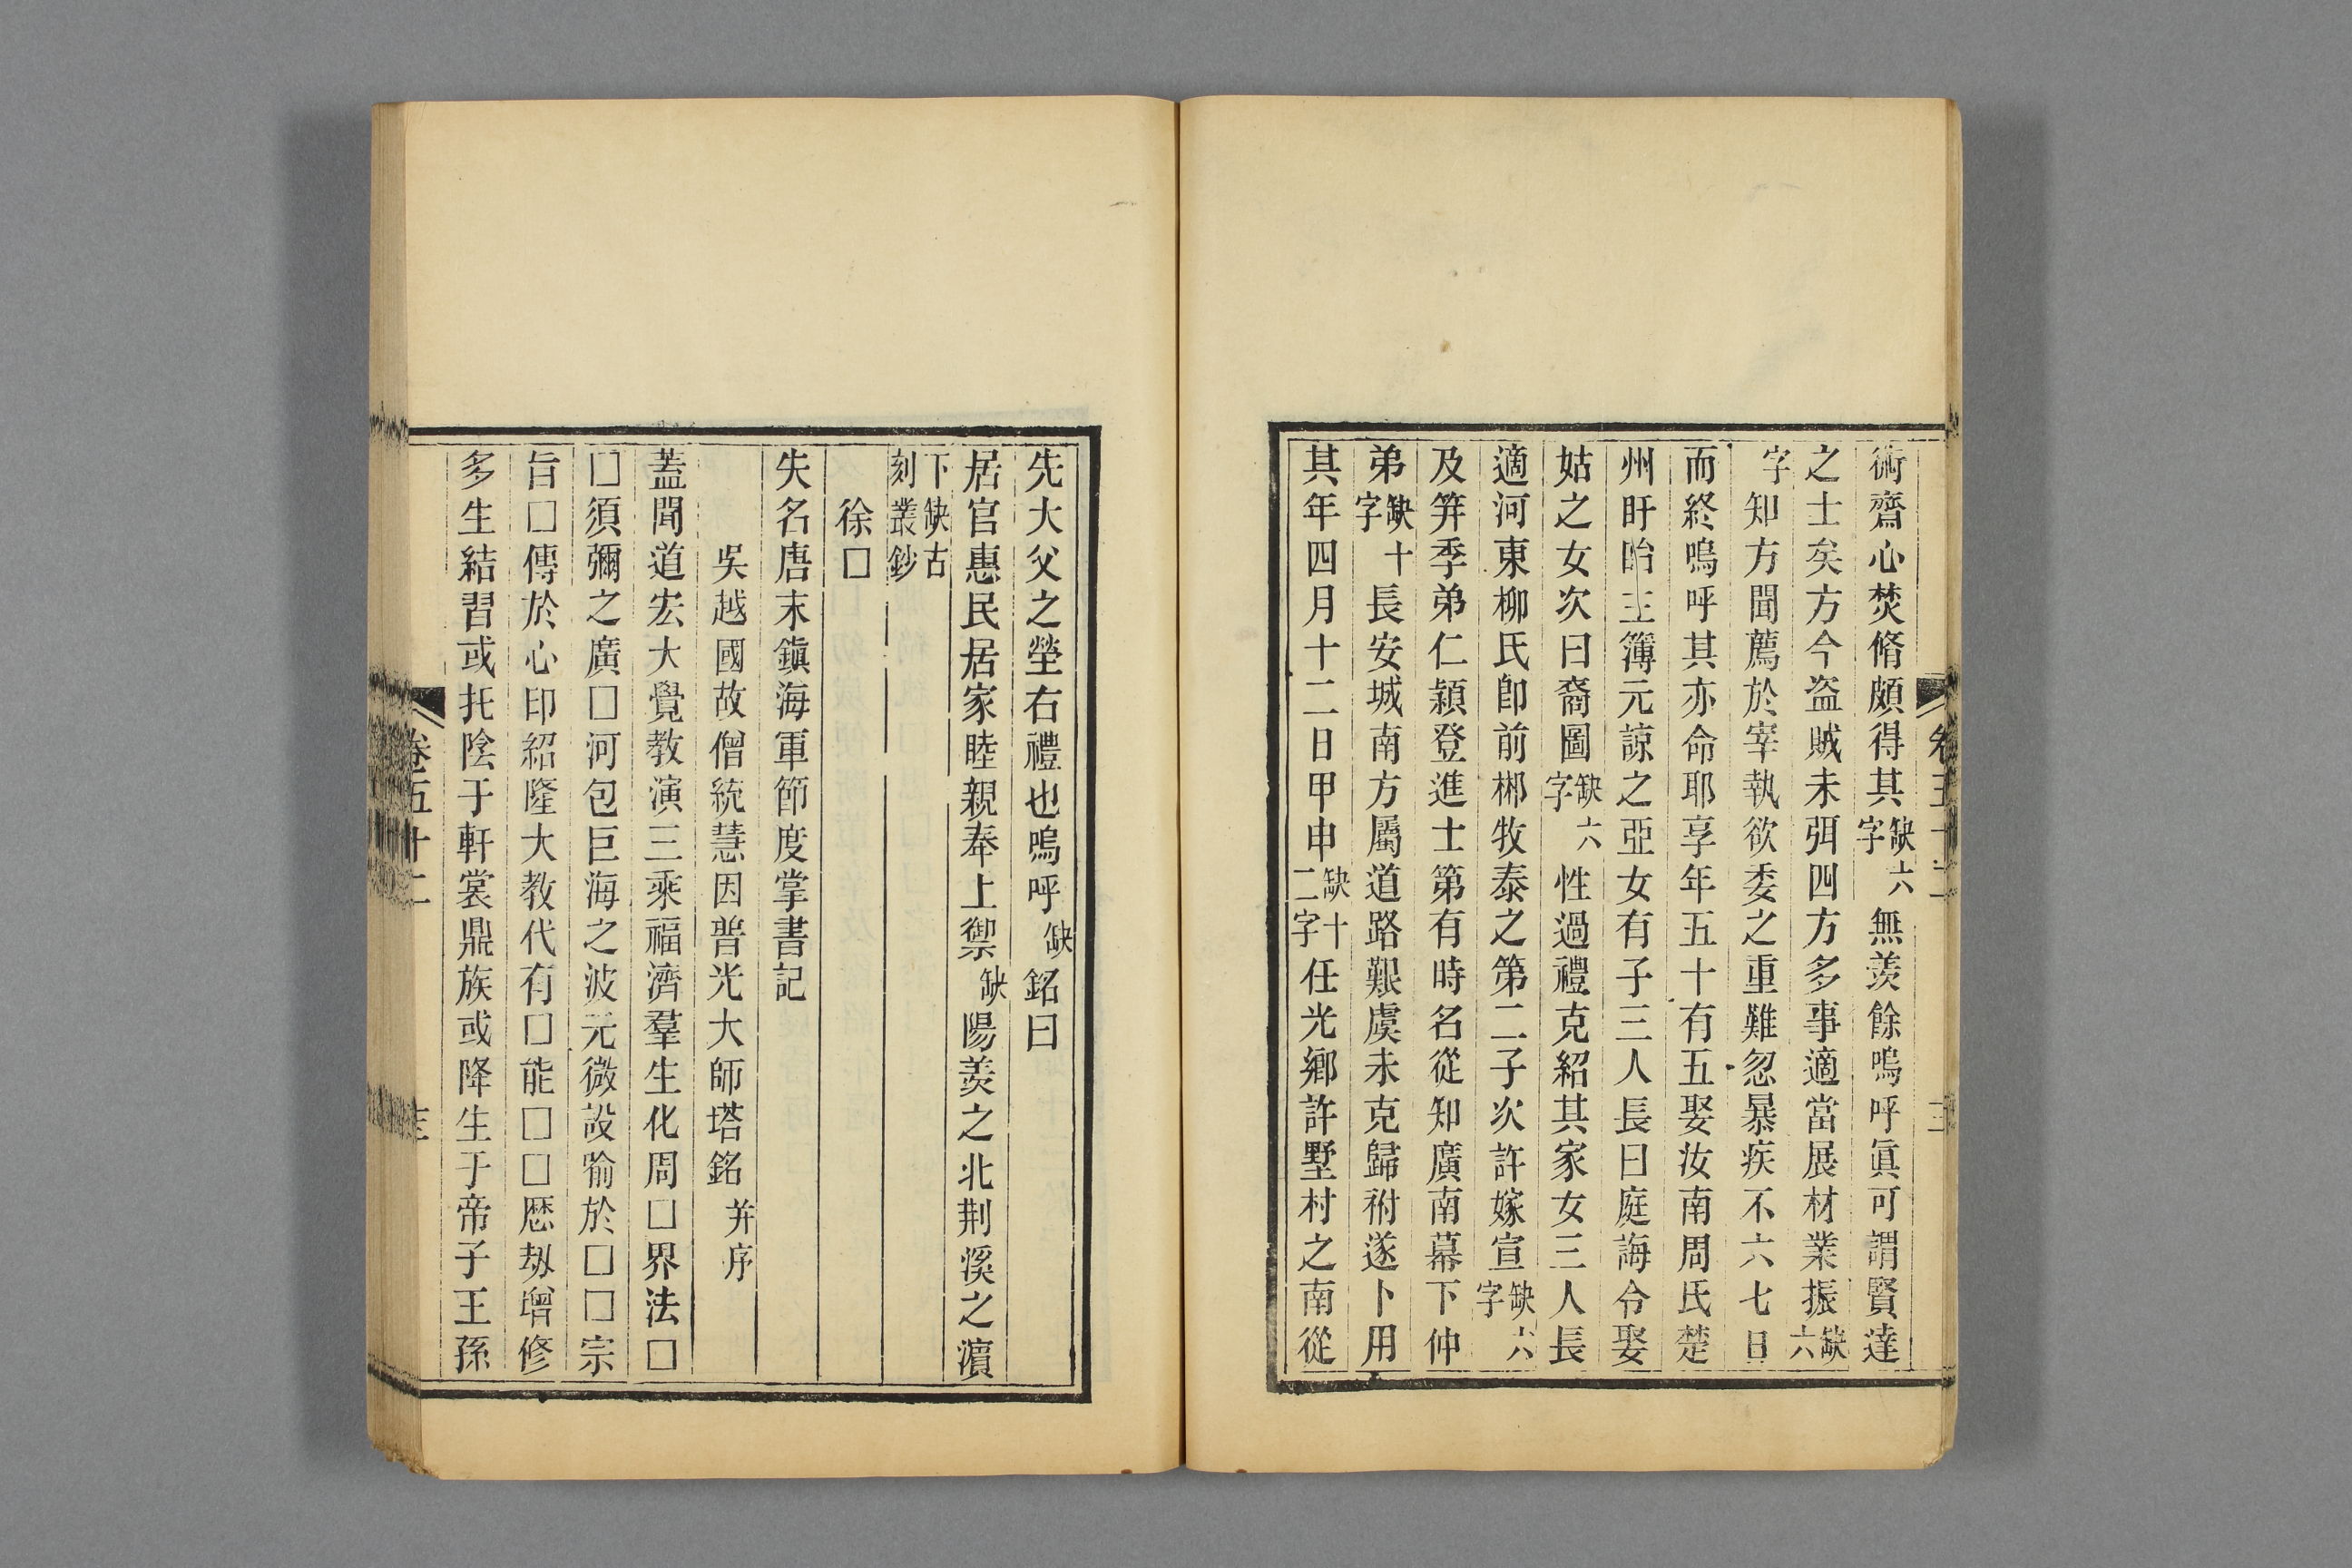 術齋心焚脩頗得其缺六字無羨餘嗚呼眞可謂賢達
之士矣方今盗賊未弭四方多事適當展材業振缺六
字知方聞薦於宰執欲委之重難忽暴疾不六七日
而終嗚呼其亦命耶享年五十有五娶汝南周氏楚
州盱眙主簿元諒之亞女有子三人長曰庭誨令娶
姑之女次曰裔圖缺六字性過禮克紹其家女三人長
適河東柳氏卽前郴牧泰之第二子次許嫁宣缺六字
及笄季弟仁穎登進士第有時名從知廣南幕下仲
弟缺十字長安城南方屬道路艱虞未克歸祔遂卜用
其年四月十二日甲申缺十二字任光鄉許墅村之南從
先大父之塋右禮也嗚呼缺銘曰
居官惠民居家睦親奉上禦缺陽羨之北荆溪之濵
下缺古刻叢鈔
徐□
失名唐末鎭海軍節度掌書記
吳越國故僧統慧因普光大師塔銘并序
蓋聞道宏大覺教演三乘福濟羣生化周□界法□
□須彌之廣□河包巨海之波元微設喻於□□宗
旨□傳於心印紹隆大教代有□能□□歷劫增修
多生結習或托陰于軒裳鼎族或降生于帝子王孫
卷五十二